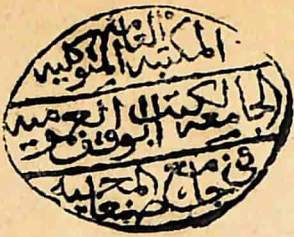 المكتبة المتوكلية
الجامعة لكتب الوقف العمومية
في جامع صنعاء المحمية